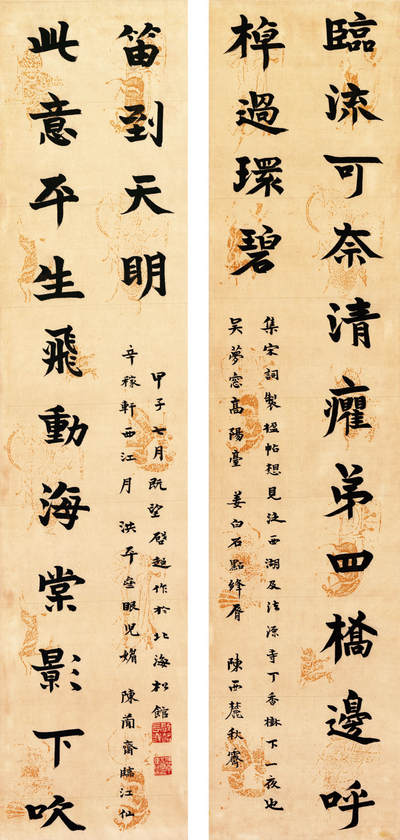 臨流可奈清癯弟四橋邊呼
棹過環碧
集宋詞製楹帖想見泛西湖及法源寺丁香樹下一夜也
吳夢窓高陽臺 姜白石點絳脣 陳西麓秋霽
此意平生飛動海棠影下吹
笛到天明
辛稼軒西江月 洪平齋眼兒媚 陳簡齋臨江仙
甲子七月既望啟超作於北海松館